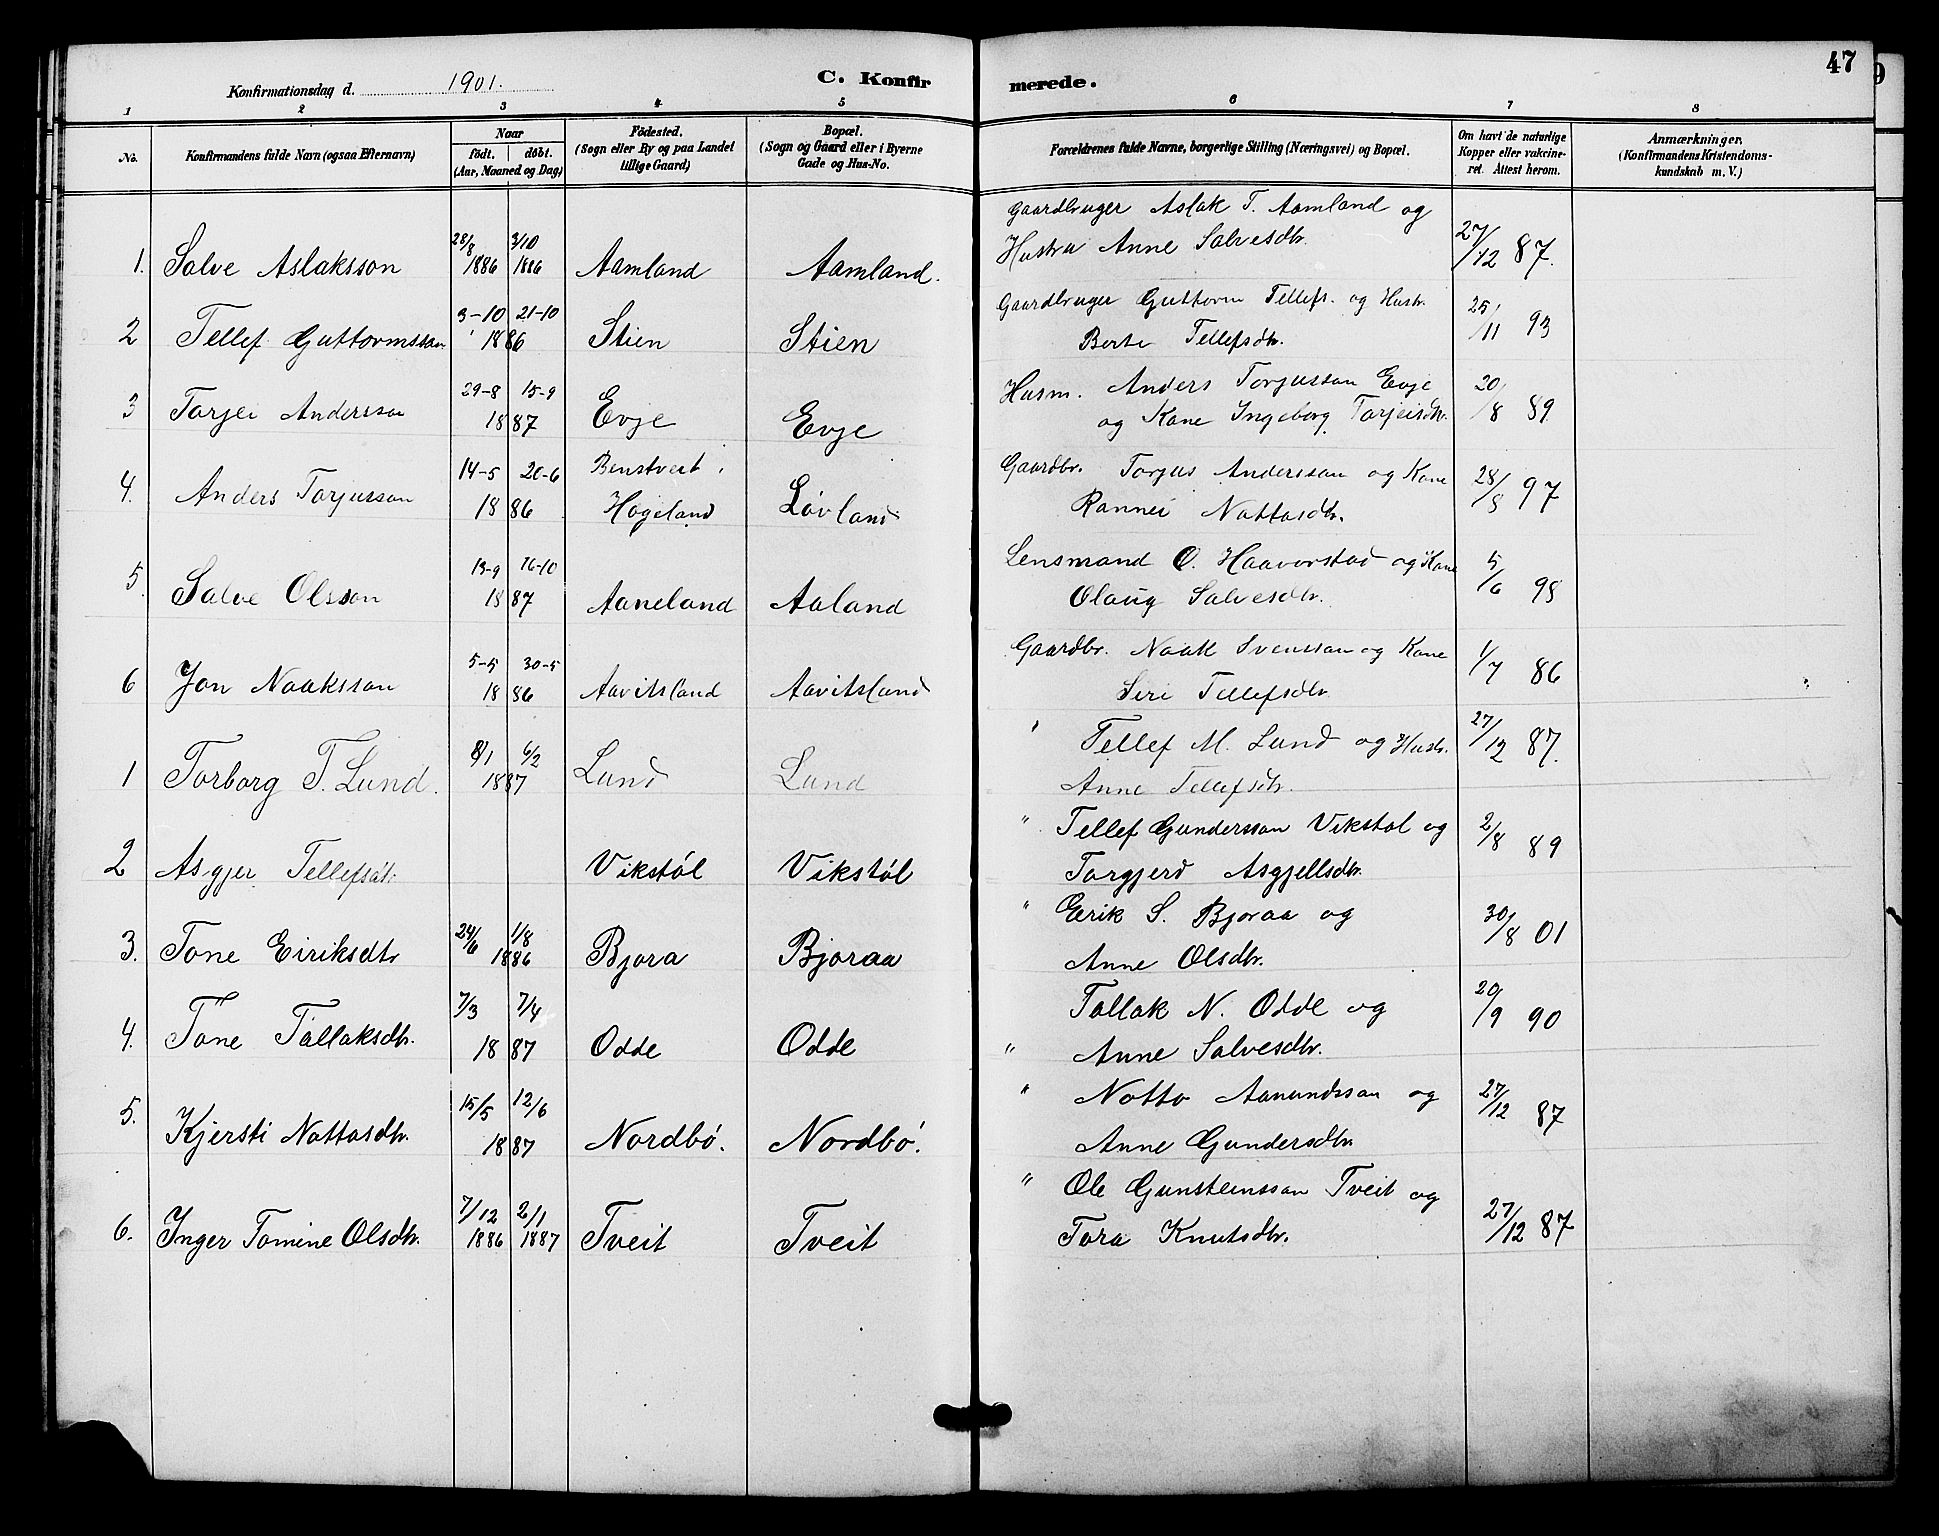 47
Konfirmationsdag d. 1901. C. Konfirmerede.
1 2 3 4 5 6 7 8
No. Konfirmandens fulde Navn (ogsaa Efternavn) Naar födt. döbt. (Aar, Maaned og Dag) Födested. (Sogn eller By og paa Landet tillige Gaard) Bopæl. (Sogn og Gaard eller i Byerne Gade og Hus-No. Forældrenes fulde Navne, borgerlige Stilling (Næringsvei) og Bopæl. Om havt de naturlige Kopper eller vakcineret. Attest herom. Anmærkninger. (Konfirmandens Kristendomskundskab m. V.)
Gaardbruger Aslak T. Aamland og
1. Salve Aslaksson 28/8 1886 3/10 1886 Aamland Aamland. Hustru Anne Salvesdtr. 27/12 87.
Gaardbruger Guttorm Tellefs. og Hustr.
2 Tellef Guttormsson 3-10 21-10 1886 Stien Stien Berte Tellefsdtr. 25/11 93
Husm. Anders Torjusson Evje
3 Torjei Andersson 29-8 15-9 1887 Evje Evje og Kone Ingeborg Torjeisdtr. 20/8 89
Gaardbr. Torjus Andersson og Kone
4. Anders Torjusson 14-5 20-6 1886 Hogeland Løvland Rannei Nottosdtr. 28/8 97
Lensmand O. Haavorstad og Kone
5. Salve Olsson 13-9 16-10 1887 Aaneland Aaland Olaug Salvesdtr. 5/6 98
Gaardbr. Noak Svensson og Kone
6 Jon Noaksson 5-5 30-5 1886 Aavitsland Aavitsland Siri Tellefsdtr. 1/7 86
" Tellef M. Lund og Hustr.
1 Torborg T. Lund. 8/1 6/2 1887 Lund Lund Anne Tellefsdtr. 27/12 87.
" Tellef Gundersson Vikstøl og
2 Asgjer Tellefsdtr. Vikstøl Vikstøl Torgjerd Asgjellsdtr. 2/8 89
" Eerik S. Bjoraa og
3. Tone Eiriksdtr 24/6 1/8 1886 Bjora Bjoraa Anne Olsdtr. 30/8 01
Tallak N. Odde og
4. Tone Tallaksdtr. 7/3 7/4 1887 Odde Odde " Anne Salvesdtr. 20/9 90
" Notto Aanundsson og
5. Kjersti Nottosdtr. 15/5 12/6 1887 Nordbø. Nordbø. Anne Gundersdtr 27/12 87
" Ole Gunsteinsson Tveit og
6. Inger Tomine Olsdtr. 7/12 1886 2/1 1887 Tveit Tveit Tora Knutsdtr. 27/12 87